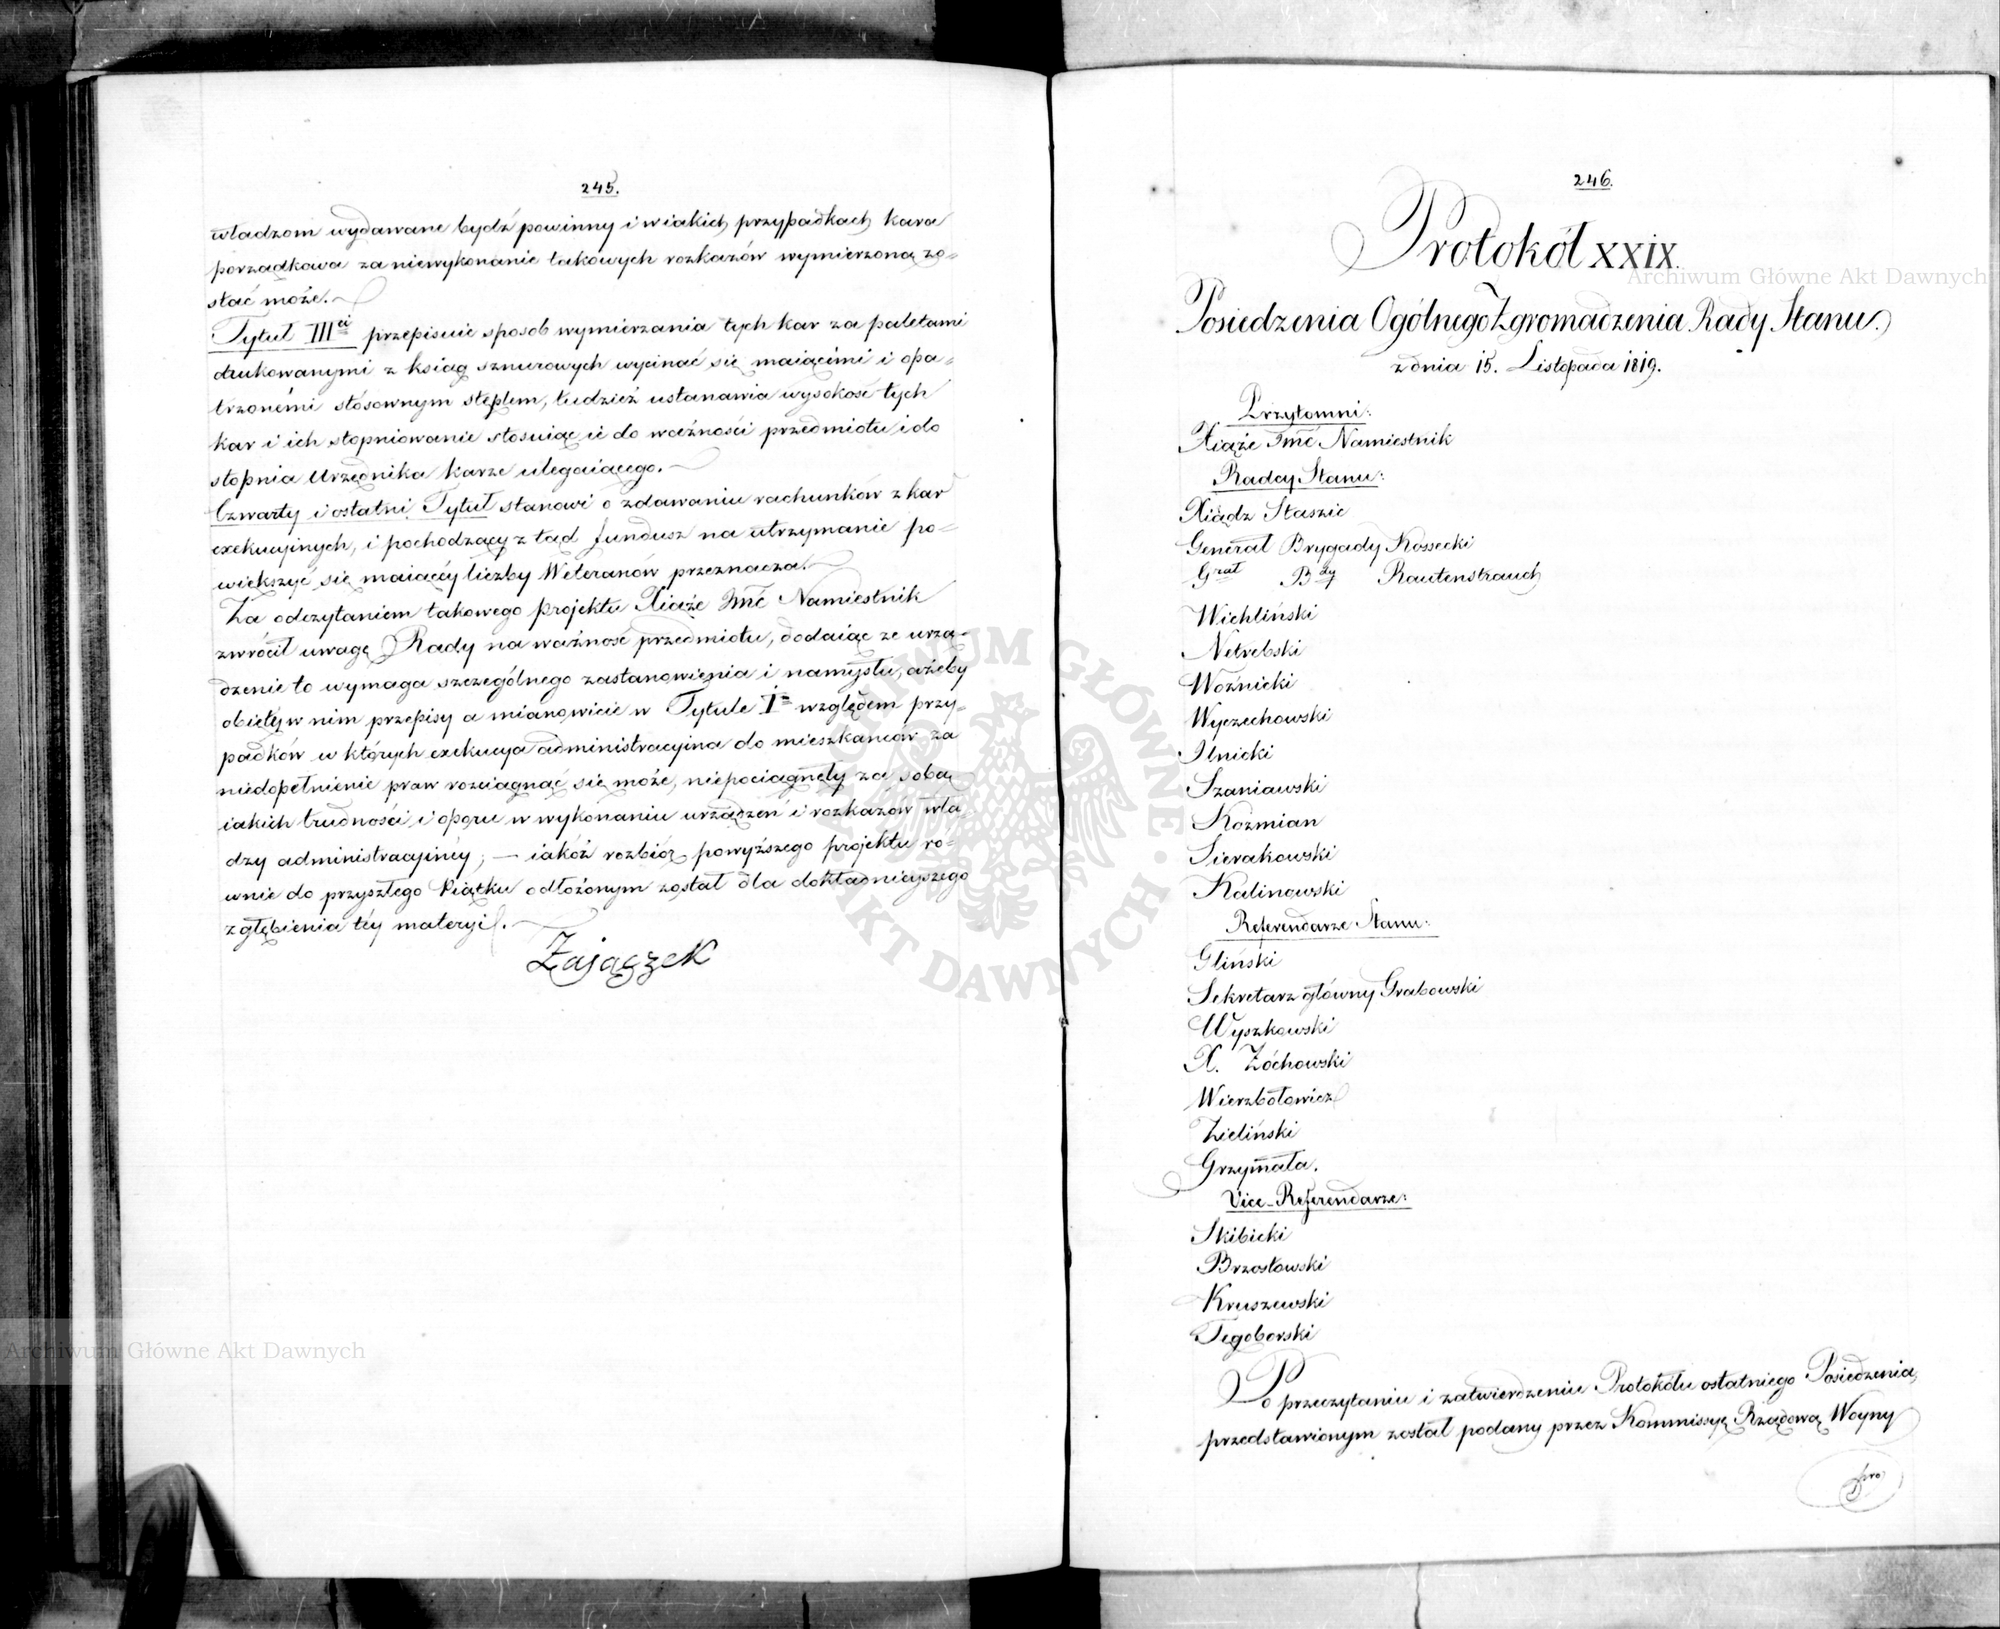 245.
władzom wydawane bydź powinny i w iakich przypadkach kara
porządkowa za niewykonanie takowych rozkazów wymierzoną zo-
stać może.
Tytuł III<sup>ci</sup> przepisuie sposob wymierzania tych kar za paletami
drukowanymi z ksiąg sznurowych wycinać się maiącemi i opa-
trzonémi stósownym stęplem, tudzież ustanawia wysokość tych
kar i ich stopniowanie stosuiąc ie do ważności przedmiotu i do
stopnia Urzędnika karze ulegaiącego.
Czwarty i ostatni Tytuł stanowi o zdawaniu rachunków z kar
exekucyinych, i pochodzący z tąd fundusz na utrzymanie po-
większyć się maiącéy liczby Weteranów przeznacza.
Za odczytaniem takowego projektu Xiąże Jmć Namiestnik
zwrócił uwagę Rady na ważność przedmiotu, dodaiąc ze urzą-
dzenie to wymaga szczególnego zastanowienia i namysłu, ażeby
obięty w nim przepisy a mianowicie w Tytule I<sup>m</sup> względem przy-
padków w których exekucya administracyina do mieszkańców za
niedopełnienie praw rozciągnąć się może, niepociągnęły za sobą
iakich trudności i oporu w wykonaniu urządzeń i rozkazów wła-
dzy administracyinéy; — iakóż rozbiór powyższego projektu ró-
wnie do przyszłego Piątku odłożonym został dla dokładnieyszego
zgłębienia téy materyi.
Zajączek
246.
Protokół XXIX.
Posiedzenia Ogólnego Zgromadzenia Rady Stanu.
z dnia 15. Listopada 1819.
Przytomni:
Xiąże Jmć Namiestnik
Radcy Stanu:
Xiądz Staszic
Generał Brygady Kossecki
G<sup>rał</sup> B<sup>dy</sup> Rautenstrauch
Wichliński
Netrebski
Woźnicki
Wyczechowski
Ilnicki
Szaniawski
Koźmian
Sierakowski
Kalinowski
Referendarze Stanu:
Gliński
Sekretarz główny Grabowski
Wyszkowski
X. Żóchowski
Wierzbołowicz
Zieliński
Grzymała.
Vice-Referendarze:
Skibicki
Brzostowski
Kruszewski
Tęgoborski
Po przeczytaniu i zatwierdzeniu Protokółu ostatniego Posiedzenia,
przedstawionym został podany przez Kommissyą Rządową Woyny
pro
Archiwum Główne Akt Dawnych
Archiwum Główne Akt Dawnych
ARCHIWUM GŁÓWNE AKT DAWNYCH